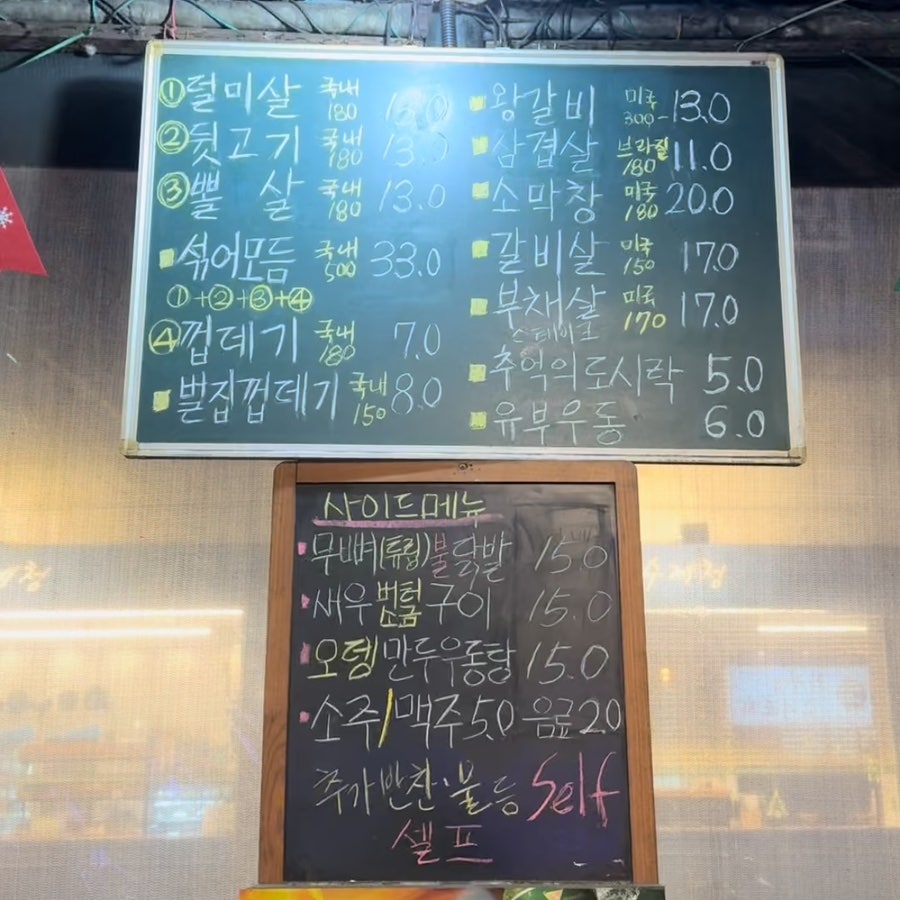 ① 털미살 국내 180 13.0
② 뒷고기 국내 180 13.0
③ 뽈살 국내 180 13.0
섞어모듬 국내 500 33.0
①+②+③+④
④ 껍데기 국내 180 7.0
벌집껍데기 국내 150 8.0
왕갈비 미국 300 - 13.0
삼겹살 브라질 180 11.0
소막창 미국 180 20.0
갈비살 미국 150 17.0
부채살 미국 170 17.0
스테이크
추억의도시락 5.0
유부우동 6.0
사이드메뉴
무뼈(튜립)불닭발 15.0
새우 버터 소금 구이 15.0
오뎅/만두우동탕 15.0
소주/맥주 5.0 음료 2.0
추가반찬·물 등 Self
셀프